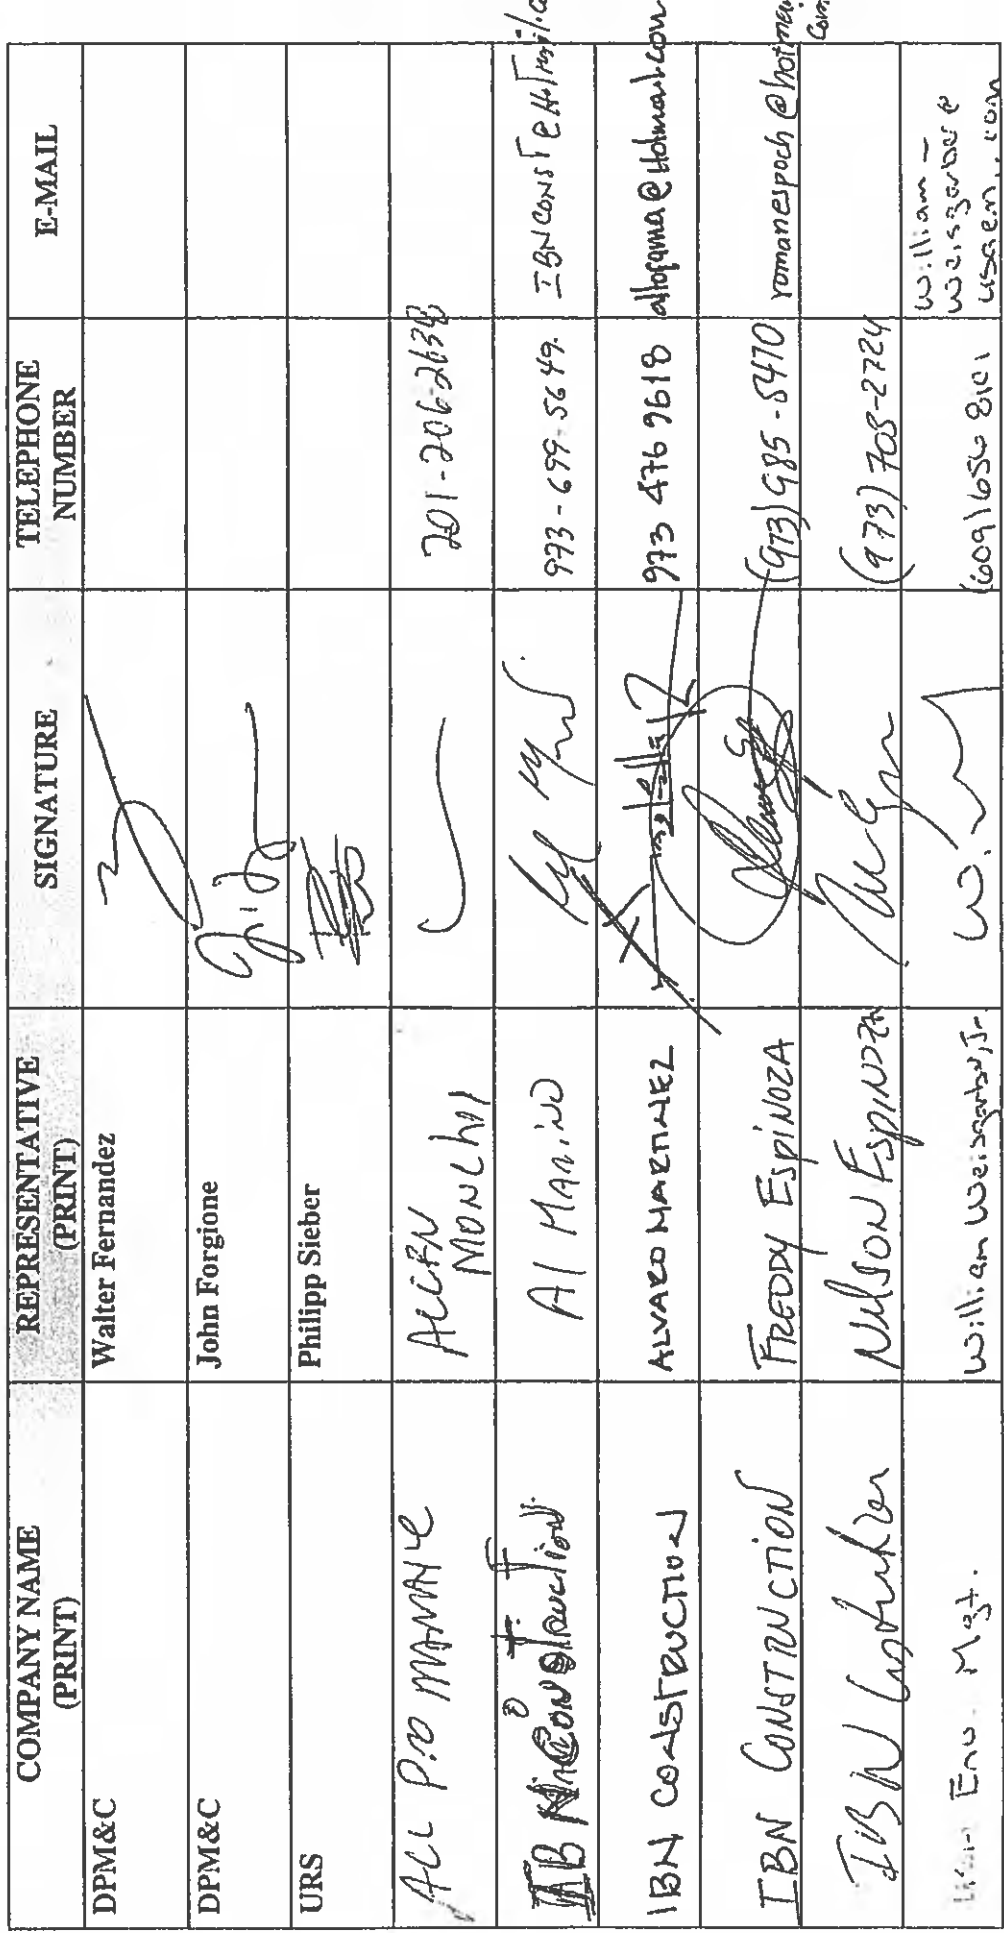 COMPANY NAME (PRINT) REPRESENTATIVE (PRINT) SIGNATURE TELEPHONE NUMBER E-MAIL
DPM&C Walter Fernandez
DPM&C John Forgione
URS Philipp Sieber
ALL PRO 201-206-2638
CONSTRUCTION Al MARINO 973-699-5649 IBNCONST@Hotmail.co
IBN CONSTRUCTION ALVARO MARTINEZ 973 476 9618 @Hotmail.com
IBN CONSTRUCTION FREDDY ESPINOZA (973) 985-5470 romanespoch@hotmail.com
IBN Nelson ESPINOZA (973) 708-2724
Env. Mgt. William Weisgarber, Jr. (609) 656 8101 William-
weisgarber@
usaem.com